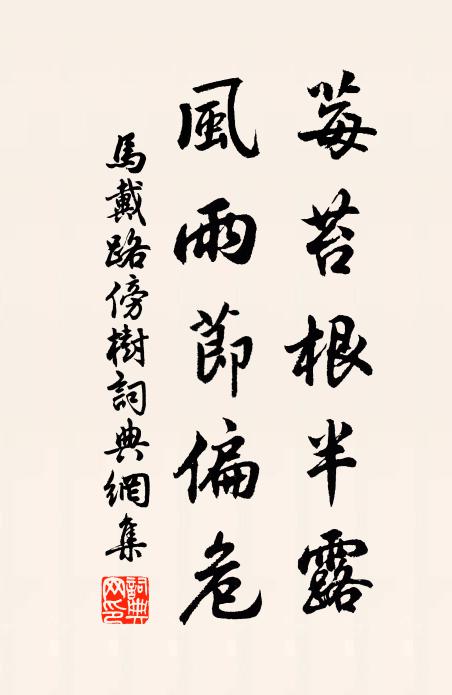 莓苔根半露
風雨節偏危
馬戴路傍樹詞典網集
詞典網印